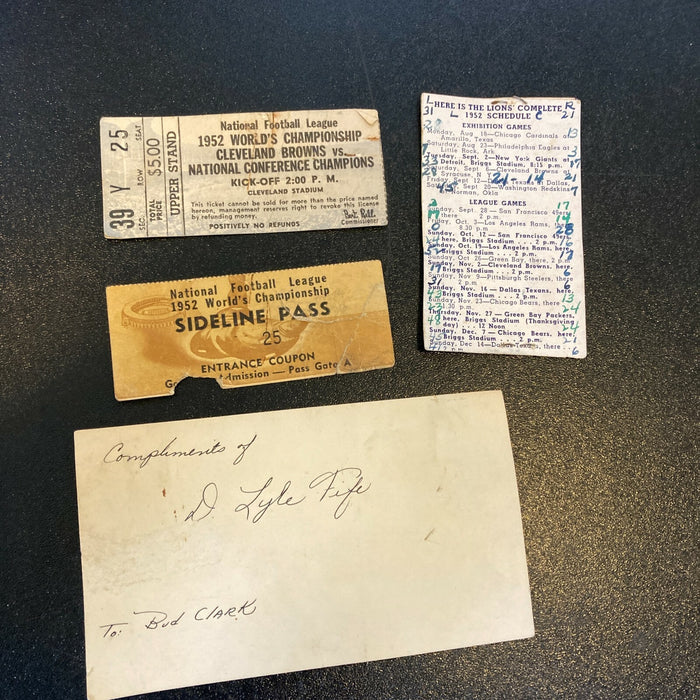 39 Y 25
SEC. ROW SEAT
TOTAL PRICE $5.00
UPPER STAND
National Football League
1952 WORLD'S CHAMPIONSHIP
CLEVELAND BROWNS vs.
NATIONAL CONFERENCE CHAMPIONS
KICK-OFF 2:00 P. M.
CLEVELAND STADIUM
This ticket cannot be sold for more than the price named
hereon, management reserves right to revoke this license
by refunding money.
POSITIVELY NO REFUNDS
Bert Bell
Commissioner
National Football League
1952 World's Championship
SIDELINE PASS
25
ENTRANCE COUPON
Admission — Pass Gate A
L HERE IS THE LIONS' COMPLETE R
31 L 1952 SCHEDULE C 21
EXHIBITION GAMES
Monday, Aug 18—Chicago Cardinals at 13
Amarillo, Texas
Saturday, Aug 23—Philadelphia Eagles at
Little Rock, Ark
Tuesday, Sept. 2—New York Giants at
Detroit, Briggs Stadium, 8:15 p.m. 17
Sept 6—Cleveland Browns at
Syracuse, N.Y. 21
Friday, Sept 12— Texas at Dallas,
Sept 20—Washington Redskins
Norman, Okla
LEAGUE GAMES
Sunday, Sept. 28—San Francisco 49ers 17
Friday, Oct. 3—Los Angeles Rams, there 14
8:30 p.m
Sunday, Oct. 12—San Francisco 49ers 28
here, Briggs Stadium . . . 2 p.m. 16
Sunday, Oct. 19—Los Angeles Rams,
here, Briggs Stadium . . . 2 p.m. 17
Sunday, Oct 26—Green Bay Packers, there
2 p.m.
Sunday, Nov. 2—Cleveland Browns, here
Briggs Stadium . . . 2 p.m. 6
Sunday, Nov 9—Pittsburgh Steelers, there
Sunday, Nov. 16—Dallas Texans, here,
Briggs Stadium . . . 2 p.m.
Sunday, Nov. 23—Chicago Bears, there 13
2 p.m. 24
Thursday, Nov. 27—Green Bay Packers,
here, Briggs Stadium (Thanksgiving
day) . . . 12 Noon 24
Sunday, Dec. 7—Chicago Bears, here,
Briggs Stadium . . . 2 p.m. 21
Sunday, Dec 14—Dallas Texans, there
6
Compliments of
D. Lyle Fife
To: Bud CLARK